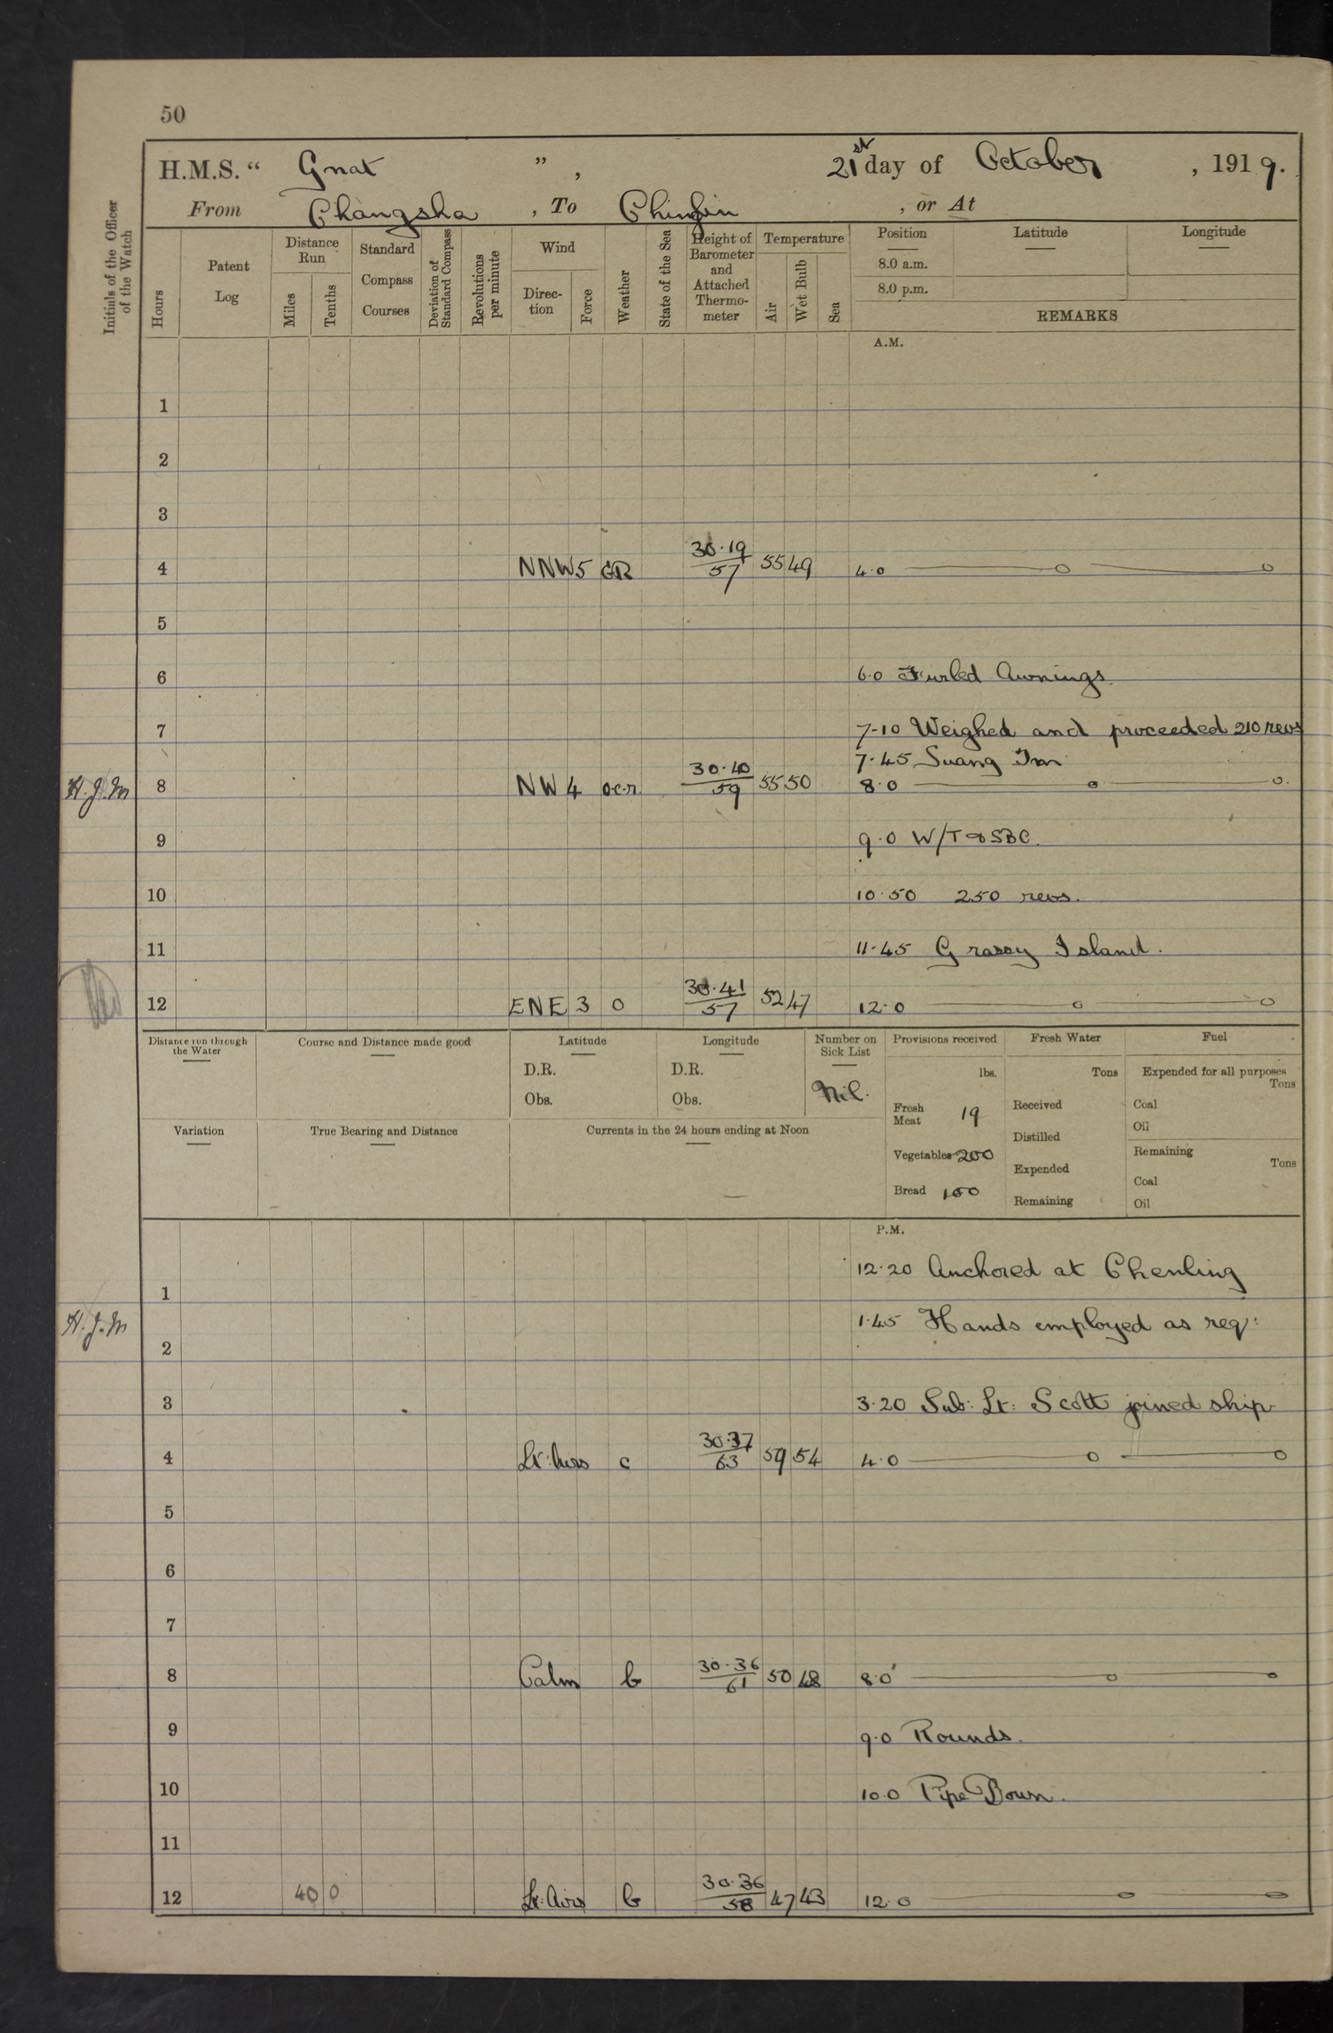 50
H.M.S. “ Gnat ”, 21st day of October, 1919.
From Changsha, To , or At
Initials of the Officer of the Watch
Hours
Patent Log
Distance Run
Miles
Tenths
Standard Compass Courses
Deviation of Standard Compass
Revolutions per minute
Wind
Direction
Force
Weather
State of the Sea
Height of Barometer and Attached Thermometer
Temperature
Air
Wet Bulb
Sea
Position
8.0 a.m.
8.0 p.m.
Latitude
Longitude
REMARKS
A.M.
1
2
3
4 NNW 5 CR 30.19 57 55 49 4.0
5
6 6.0 Furled Awnings.
7 7-10 Weighed and proceeded 210 revs
7.45
H.J.M 8 NW 4 o.c.r. 30.40 59 55 50 8.0
9 9.0 W/T & SBC.
10 10.50 250 revs.
11 11.45 Grassy Island.
12 ENE 3 O 30.41 57 52 47 12.0
Distance run through the Water
Course and Distance made good
Latitude
D.R.
Obs.
Longitude
D.R.
Obs.
Number on Sick List
Nil.
Provisions received
lbs.
Fresh Meat 19
Vegetables 200
Bread 100
Fresh Water
Tons
Received
Distilled
Expended
Remaining
Fuel
Expended for all purposes
Tons
Coal
Oil
Remaining
Tons
Coal
Oil
Variation
True Bearing and Distance
Currents in the 24 hours ending at Noon
P.M.
12.20 Anchored at Chenling
1
H.J.M 1.45 Hands employed as req:
2
3 3.20 Sub: Lt: Scott joined ship
4 Lt: Airs c 30.37 63 59 54 4.0
5
6
7
8 Calm b 30.36 61 50 48 8.0
9 9.0 Rounds.
10 10.0 Pipe Down.
11
12 40 0 Lt: Airs b 30.36 58 47 43 12.0